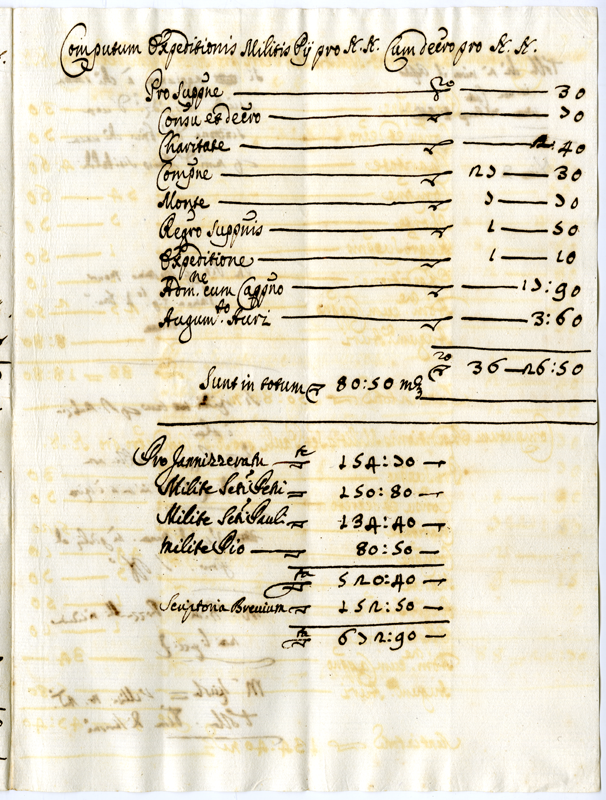 Computum Expeditionis Militis Pij pro N. N. Cum decro pro N. N.
Pro Suppne — 30
Consu et decro — 30
Charitate — 2:40
Compne — 23 — 30
Monte — 3 — 30
Regro Suppnis — 1 — 50
Expeditione — 1 — 10
Adm.ne cum Cappno — 13:90
Augum.to Auri — 3:60
36 — 26:50
Sunt in totum 80:50 m
Pro Jannizzeratu — 154:30 —
Milite Scti Petri = 150:80 —
Milite Scti Pauli = 134:40 —
Milite Pio — 80:50 —
520:40 —
Scriptoria Brevium = 152:50 —
672:90 —